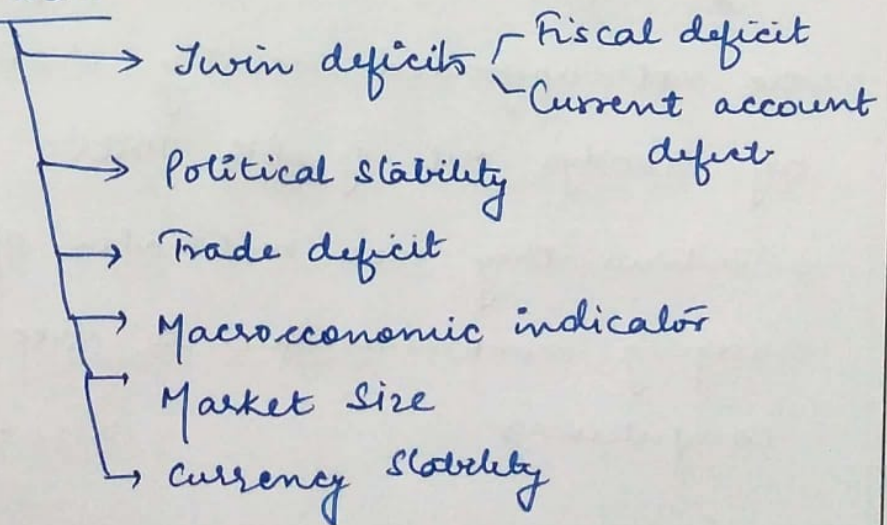 Twin deficits
Fiscal deficit
Current account
deficit
Political stability
Trade deficit
Macroeconomic indicator
Market Size
Currency Stability